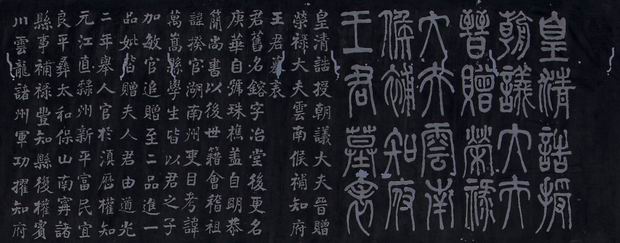 皇清誥授
朝議大夫
晉贈榮祿
大夫雲南
候補知府
王君墓表
皇清誥授朝議大夫晉贈
榮祿大夫雲南候補知府
王君墓表
君舊名鎔字治堂後更名
庚華自號珠樵蓋自明恭
簡尚書以後世籍會稽祖
諱揆官湖南州吏目考諱
萬嵩縣學生皆以君之子
加敏官追贈至二品進一
品妣皆贈夫人君由道光
二年舉人官於滇歷權知
元江直隸州新平富民宜
良平彝太和保山南寧諸
縣事補祿豐知縣後權賓
川雲龍諸州軍功擢知府